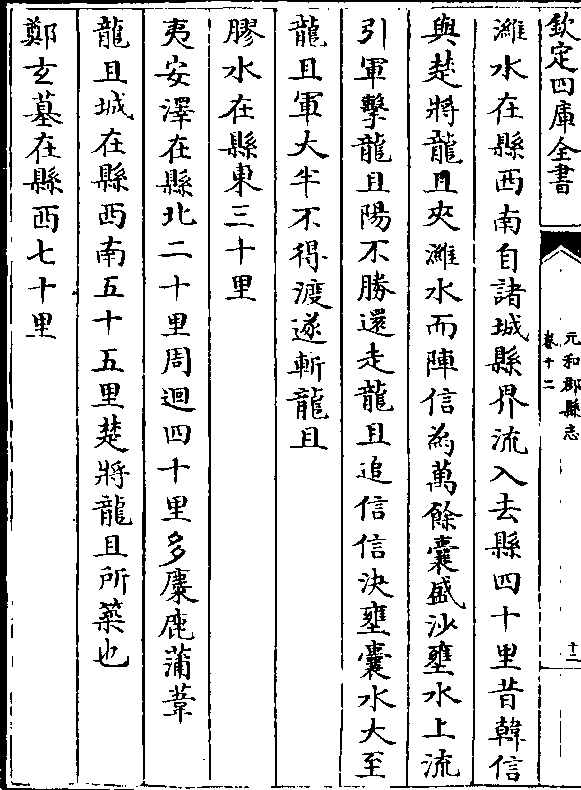 欽定四庫全書
元和郡縣志
卷十二
十二
濰水在縣西南自諸城縣界流入去縣四十里昔韓信
與楚將龍且夾濰水而陣信為萬餘囊盛沙壅水上流
引軍擊龍且陽不勝還走龍且追信信決壅囊水大至
龍且軍大半不得渡遂斬龍且
膠水在縣東三十里
夷安澤在縣北二十里周迴四十里多麋鹿蒲葦
龍且城在縣西南五十五里楚將龍且所築也
鄭玄墓在縣西七十里